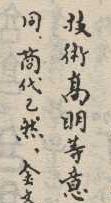 技術高明等意
同商代已然，金文